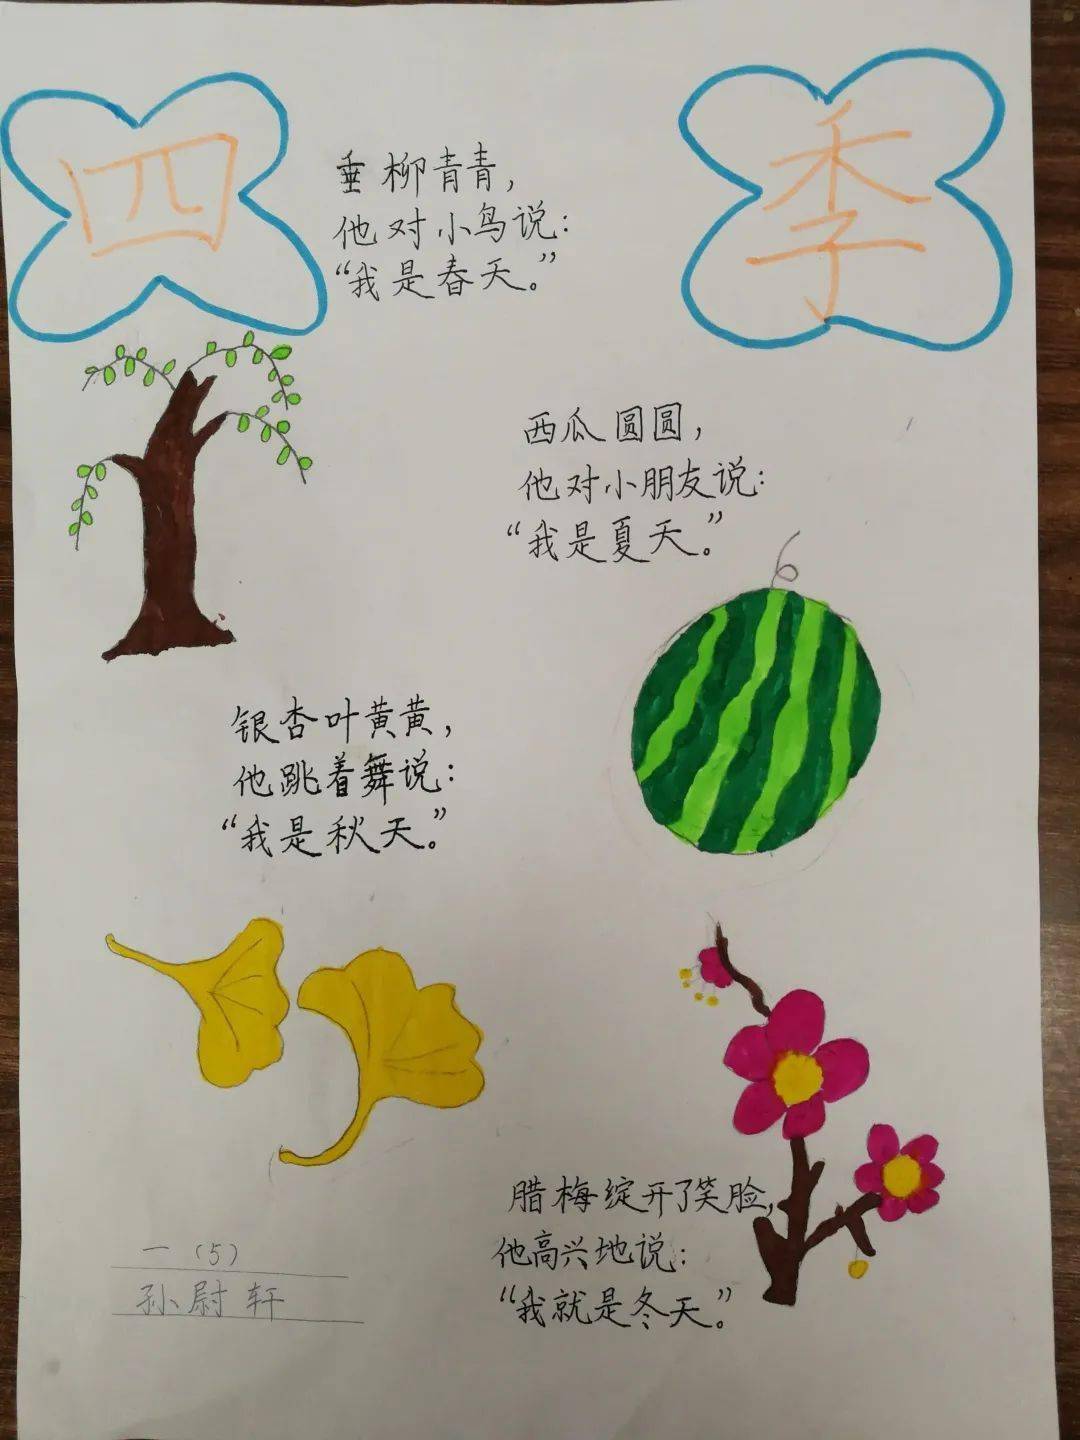 四季
垂柳青青，
他对小鸟说：
“我是春天。”
西瓜圆圆，
他对小朋友说：
“我是夏天。”
银杏叶黄黄，
他跳着舞说：
“我是秋天。”
腊梅绽开了笑脸，
他高兴地说：
“我就是冬天。”
一（5）
孙尉轩